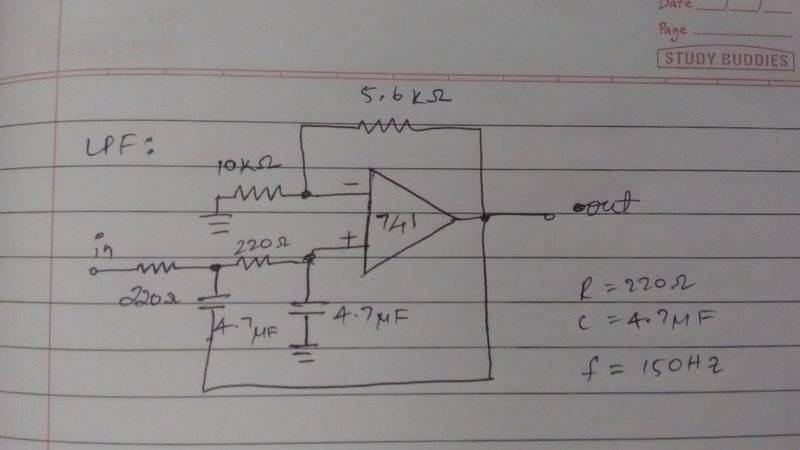 Date ___/___/___
Page
STUDY BUDDIES
5.6kΩ
LPF:
10KΩ
−
741
out
in
220Ω
+
220Ω
4.7μF
4.7μF
R = 220Ω
C = 4.7μF
f = 150Hz